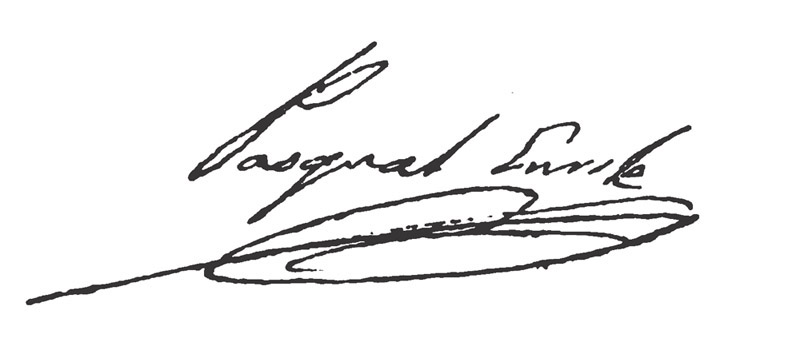 Pasqual Enrile